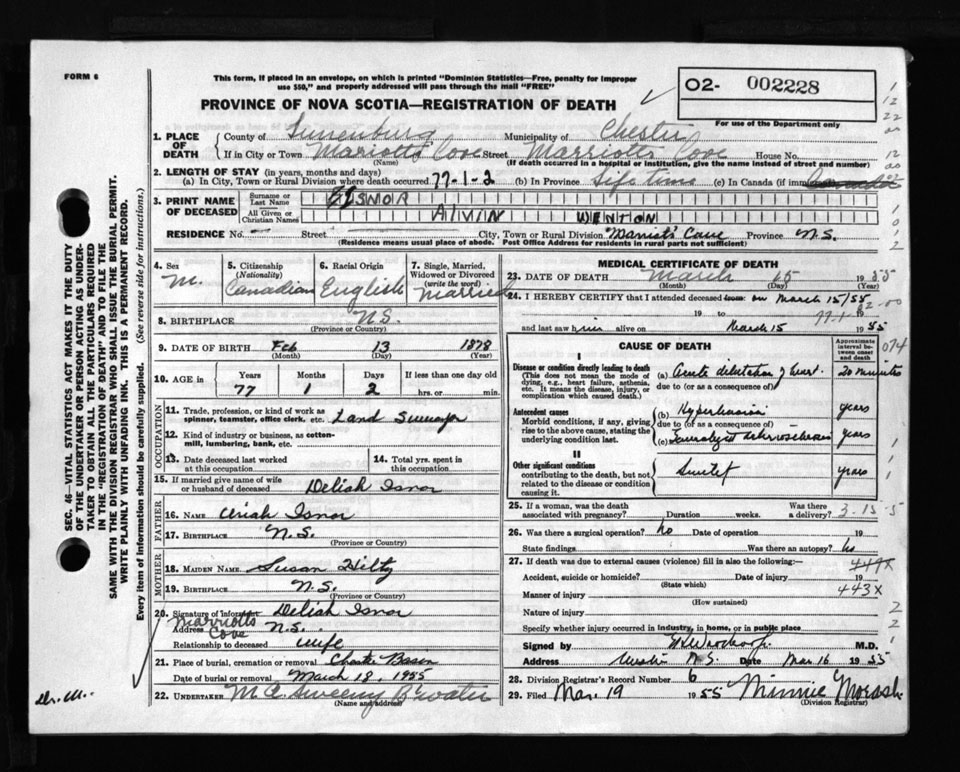 FORM 6
This form, if placed in an envelope, on which is printed "Dominion Statistics—Free, penalty for improper
use $50," and properly addressed will pass through the mail "FREE"
O2- 002228
PROVINCE OF NOVA SCOTIA—REGISTRATION OF DEATH
For use of the Department only
1. PLACE OF DEATH
County of Lunenburg Municipality of Chester
If in City or Town Mariotts Cove Street Marriotts Cove House No.
(Name) (If death occurred in a hospital or institution, give the name instead of street and number)
2. LENGTH OF STAY (in years, months and days)
(a) In City, Town or Rural Division where death occurred 77-1-2 (b) In Province Life time (c) In Canada (if
3. PRINT NAME OF DECEASED
Surname or Last Name ISNOR
All Given or Christian Names ALVIN WENTON
RESIDENCE No. — Street City, Town or Rural Division Cove Province N.S.
(Residence means usual place of abode. Post Office Address for residents in rural parts not sufficient)
4. Sex M.
5. Citizenship (Nationality) Canadian
6. Racial Origin English
7. Single, Married, Widowed or Divorced (write the word) Married
8. BIRTHPLACE N.S.
(Province or Country)
9. DATE OF BIRTH Feb 13 1878
(Month) (Day) (Year)
10. AGE in Years 77 Months 1 Days 2 If less than one day old
hrs. or min.
OCCUPATION
11. Trade, profession, or kind of work as spinner, teamster, office clerk, etc. Land Surveyor
12. Kind of industry or business, as cotton-mill, lumbering, bank, etc.
13. Date deceased last worked at this occupation
14. Total yrs. spent in this occupation
15. If married give name of wife or husband of deceased Deliah Isnor
FATHER
16. NAME Uriah Isnor
17. BIRTHPLACE N.S.
(Province or Country)
MOTHER
18. MAIDEN NAME Susan Hiltz
19. BIRTHPLACE N.S.
(Province or Country)
20. Signature of informant Deliah Isnor
Address Marriotts Cove N.S.
Relationship to deceased wife
21. Place of burial, cremation or removal Chester Basin
Date of burial or removal March 18, 1955
22. UNDERTAKER Sweeny B'water
(Name and address)
MEDICAL CERTIFICATE OF DEATH
23. DATE OF DEATH March 15 1955
(Month) (Day) (Year)
24. I HEREBY CERTIFY that I attended deceased from on March 15/55
19 to 19
and last saw him alive on March 15 1955
CAUSE OF DEATH
Approximate interval between onset and death
074
I
Disease or condition directly leading to death
(This does not mean the mode of dying, e.g., heart failure, asthenia, etc. It means the disease, injury, or complication which caused death.)
(a) Acute dilatation of heart. 20 minutes
due to (or as a consequence of)
Antecedent causes
Morbid conditions, if any, giving rise to the above cause, stating the underlying condition last.
(b) Hypertension years
due to (or as a consequence of)
(c) years
II
Other significant conditions
contributing to the death, but not related to the disease or condition causing it.
years
25. If a woman, was the death associated with pregnancy? Duration weeks. Was there a delivery?
3-15-5
26. Was there a surgical operation? no Date of operation 19
State findings Was there an autopsy? no
27. If death was due to external causes (violence) fill in also the following:—
Accident, suicide or homicide? Date of injury 19
(State which)
Manner of injury 443X
(How sustained)
Nature of injury
Specify whether injury occurred in industry, in home, or in public place
Signed by M.D.
Address N.S. Date Mar 16 1955
28. Division Registrar's Record Number 6
29. Filed Mar. 19 1955 Minnie Morash
(Division Registrar)
SEC. 46—VITAL STATISTICS ACT MAKES IT THE DUTY
OF THE UNDERTAKER OR PERSON ACTING AS UNDER-
TAKER TO OBTAIN ALL THE PARTICULARS REQUIRED
IN THE "REGISTRATION OF DEATH" AND TO FILE THE
SAME WITH THE DIVISION REGISTRAR WHO SHALL ISSUE THE BURIAL PERMIT.
WRITE PLAINLY WITH UNFADING INK. THIS IS A PERMANENT RECORD.
Every item of information should be carefully supplied. (See reverse side for instructions.)